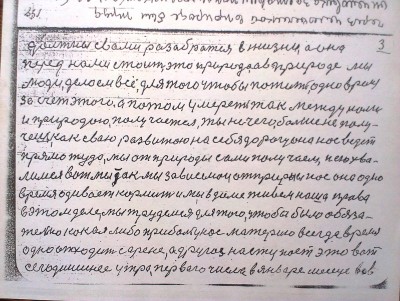 должны свами разабратся в жизни а она
3
перед нами стоит, это природа, а в природе мы
люди, делоем всё, для того чтобы пожить одно время
за счет этого. а потом умереть так между нами
и природою, получается, ты нечего, больше не полу-
чеш, как сваю развитою на себя дорогу она нас ведет
прямо туда, мы от природы сами получаем, не
лимся вот мы так мы зависимы от природы нас она одно
время одивает кормит и мы в доме живём наша права
в этом деле, мы трудемся для того, чтобы было обяза-
тельно какая либо прибаль нас материло всегда время
одно отходит с арене, а другоя наступает это вот
сегодняшнее утра, перваго числа в январе месеце